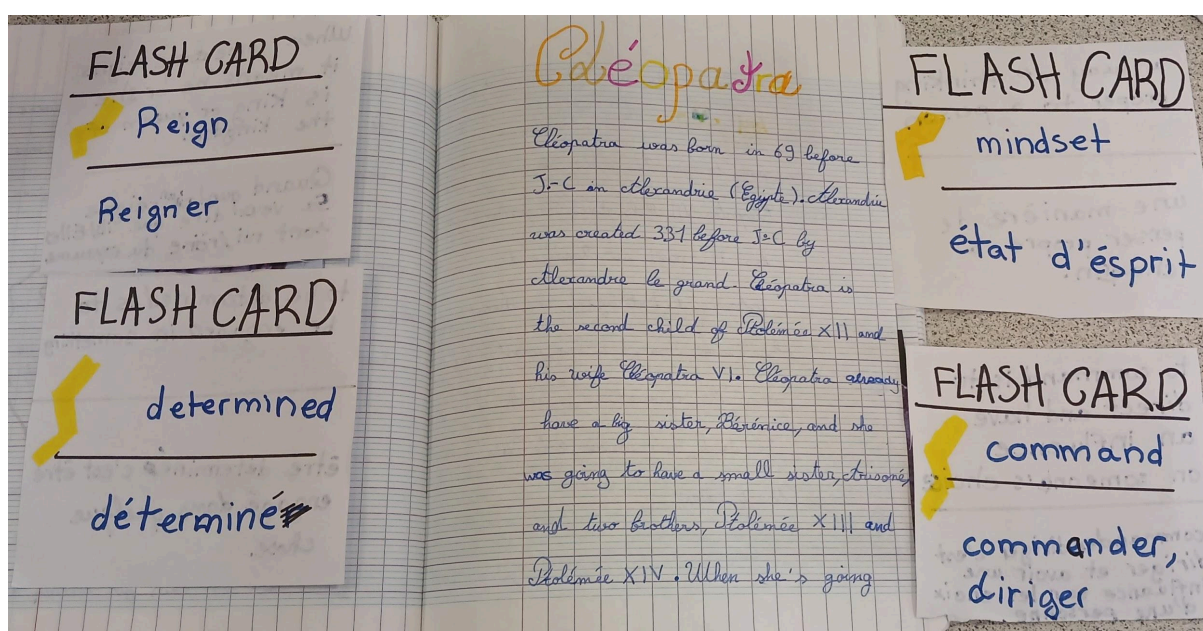 FLASH CARD
Reign
Reigner
FLASH CARD
determined
déterminé
Cléopatra
Cléopatra was born in 69 before
J.-C in Alexandrie (Egypte). Alexandrie
was created 331 before J-C by
Alexandre le grand. Cléopatra is
the second child of Ptolémée XII and
his wife Cléopatra VI. Cléopatra already
have a big sister, Bérénice, and she
was going to have a small sister, Arsinoé,
and two brothers, Ptolémée XIII and
Ptolémée XIV. When she's going
FLASH CARD
mindset
état d'ésprit
FLASH CARD
command
commander,
diriger